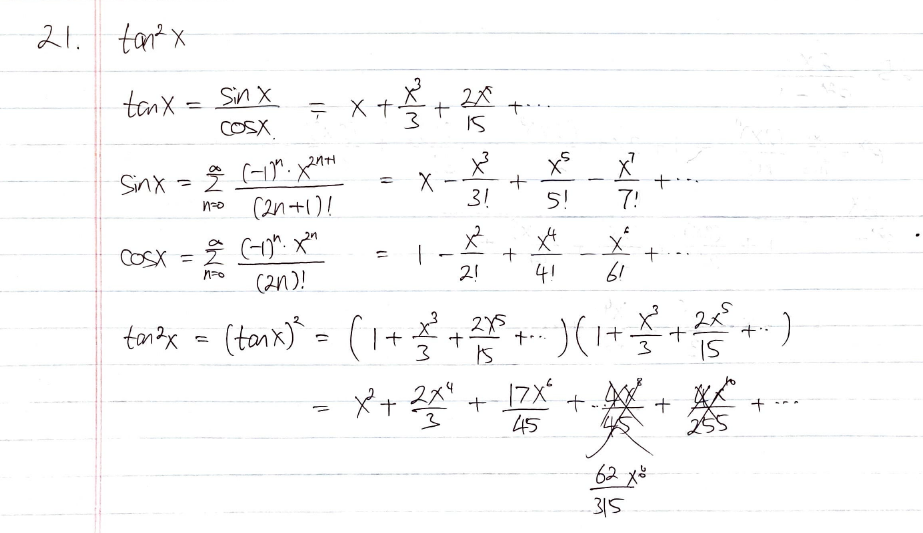 21. tan² x
tan x = sin x / cos x = x + x³/3 + 2x⁵/15 + ...
sin x = ∞ Σ n=0 (-1)ⁿ · x²ⁿ⁺¹ / (2n+1)! = x - x³/3! + x⁵/5! - x⁷/7! + ...
cos x = ∞ Σ n=0 (-1)ⁿ · x²ⁿ / (2n)! = 1 - x²/2! + x⁴/4! - x⁶/6! + ...
tan² x = (tan x)² = (1 + x³/3 + 2x⁵/15 + ...)(1 + x³/3 + 2x⁵/15 + ...)
= x² + 2x⁴/3 + 17x⁶/45 + 4x⁸/45 + 4x¹⁰/255 + ...
62 x⁸/315